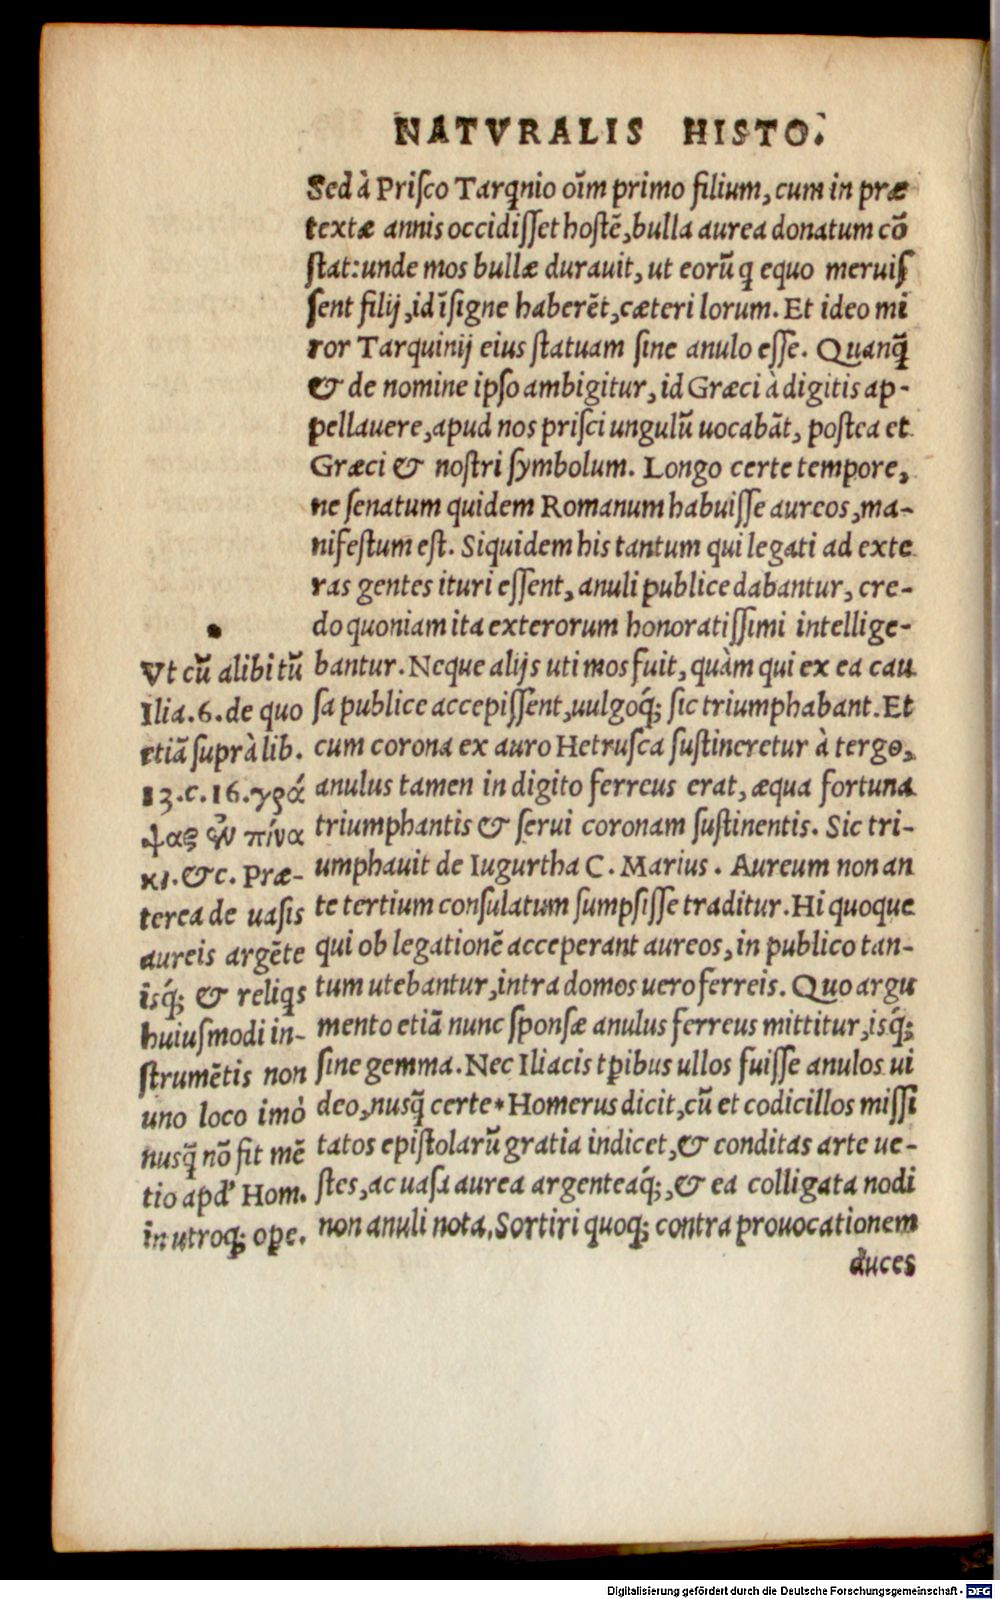 NATVRALIS HISTO.
Sed à Priſco Tarq̃nio oĩm primo filium, cum in præ
textæ annis occidiſſet hoſtẽ, bulla aurea donatum cõ
ſtat: unde mos bullæ durauit, ut eorũ q equo meruiſ
ſent filij, id ĩſigne haberẽt, cæteri lorum. Et ideo mi
ror Tarquinij eius ſtatuam ſine anulo eſſe. Quanq̃
& de nomine ipſo ambigitur, id Græci à digitis ap-
pellauere, apud nos priſci ungulũ uocabãt, poſtea et
Græci & noſtri ſymbolum. Longo certe tempore,
ne ſenatum quidem Romanum habuiſſe aureos, ma-
nifeſtum eſt. Siquidem his tantum qui legati ad exte
ras gentes ituri eſſent, anuli publice dabantur, cre-
do quoniam ita exterorum honoratiſſimi intellige-
bantur. Neque alijs uti mos fuit, quàm qui ex ea cau
ſa publice accepiſſent, uulgoq́; ſic triumphabant. Et
cum corona ex auro Hetruſca ſuſtineretur à tergo,
anulus tamen in digito ferreus erat, æqua fortuna
triumphantis & ſerui coronam ſuſtinentis. Sic tri-
umphauit de Iugurtha C. Marius. Aureum non an
te tertium conſulatum ſumpſiſſe traditur. Hi quoque
qui ob legationẽ acceperant aureos, in publico tan-
tum utebantur, intra domos uero ferreis. Quo argu
mento etiã nunc ſponſæ anulus ferreus mittitur, isq́;
ſine gemma. Nec Iliacis tꝑibus ullos fuiſſe anulos ui
deo, nusq̃ certe * Homerus dicit, cũ et codicillos miſſi
tatos epiſtolarũ gratia indicet, & conditas arte ue-
ſtes, ac uaſa aurea argenteaq́;, & ea colligata nodi
non anuli nota. Sortiri quoq; contra prouocationem
duces
Vt cũ alibi tũ
Ilia. 6. de quo
etiã ſuprà lib.
13. c. 16. γρά
ψας ἐν πίνα
κι. &c. Præ-
terea de uaſis
aureis argẽte
isq́; & reliqs
huiuſmodi in-
ſtrumẽtis non
uno loco imò
nusq̃ nõ fit mẽ
tio apd' Hom.
in utroq; oꝑe.
Digitalisierung gefördert durch die Deutsche Forschungsgemeinschaft - DFG